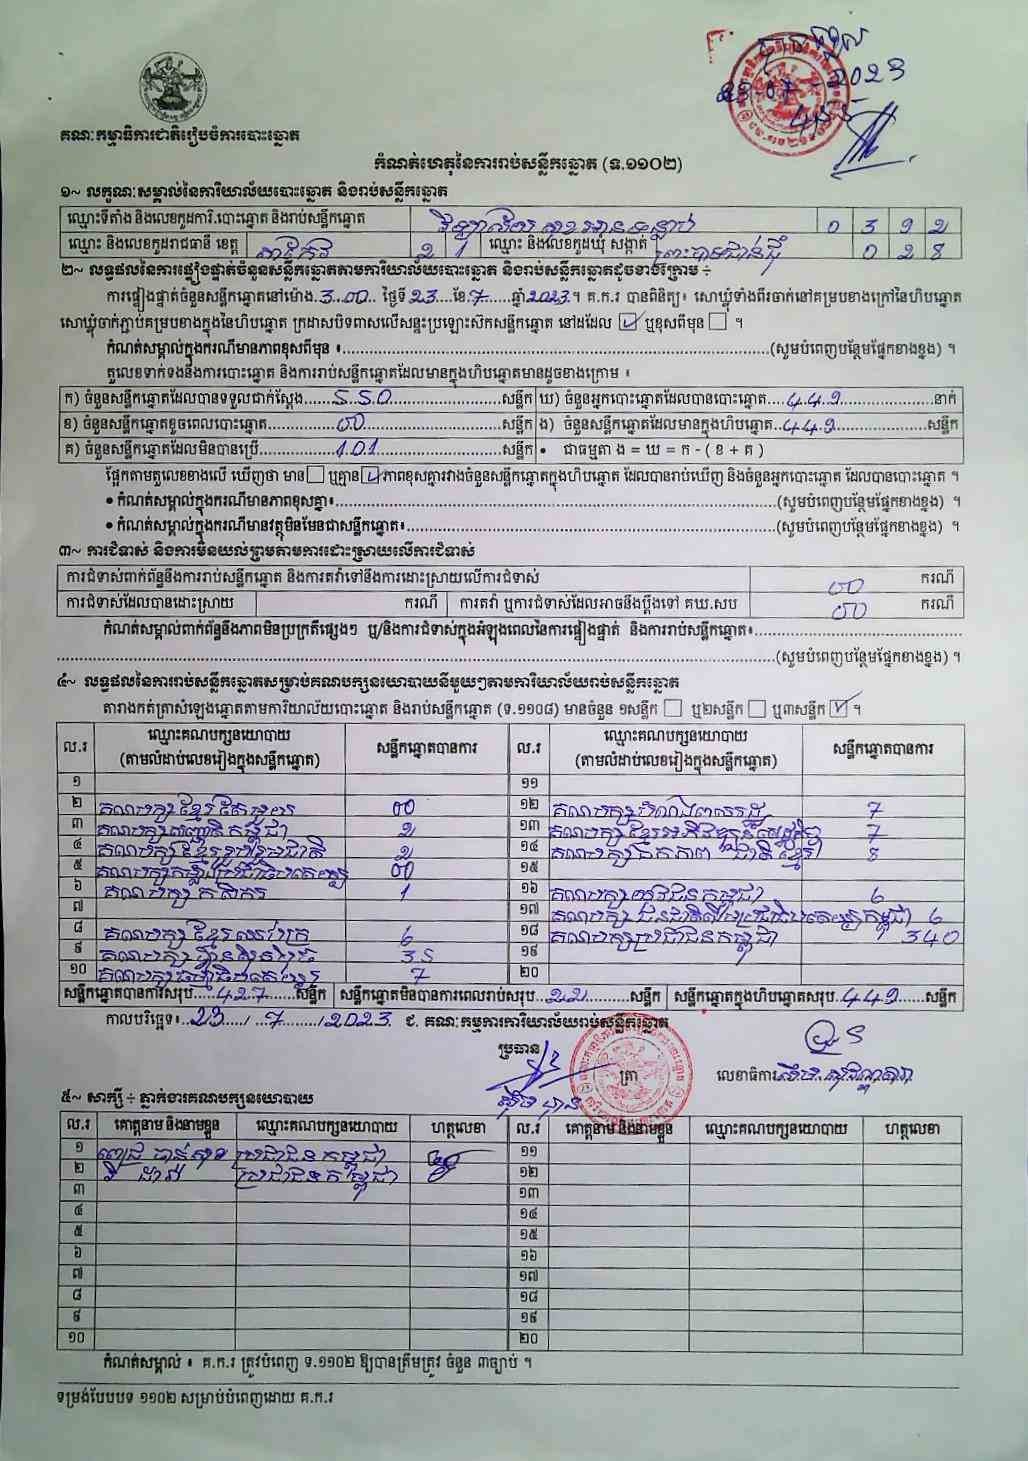 គណៈកម្មាធិការជាតិរៀបចំការបោះឆ្នោត
2023
កំណត់ហេតុនៃការរាប់សន្លឹកឆ្នោត (ទ.១១០២)
១~ លក្ខណៈសម្គាល់នៃការិយាល័យបោះឆ្នោត និងរាប់សន្លឹកឆ្នោត
ឈ្មោះទីតាំង និងលេខកូដការិ.បោះឆ្នោត និងរាប់សន្លឹកឆ្នោត វិទ្យាល័យ
ឈ្មោះ និងលេខកូដរាជធានី ខេត្ត តាកែវ 21 ឈ្មោះ និងលេខកូដឃុំ សង្កាត់ ព្រះបាទជាន់ជុំ 028
២~ លទ្ធផលនៃការផ្ទៀងផ្ទាត់ចំនួនសន្លឹកឆ្នោតតាមការិយាល័យបោះឆ្នោត និងរាប់សន្លឹកឆ្នោតដូចខាងក្រោម ÷
ការផ្ទៀងផ្ទាត់ចំនួនសន្លឹកឆ្នោតនៅម៉ោង.3.00.. ថ្ងៃទី23....ខែ.7.....ឆ្នាំ.2023.។ គ.ក.រ បានពិនិត្យ៖ សោឃ្លុំទាំងពីរចាក់នៅគម្របខាងក្រៅនៃហិបឆ្នោត
សោឃ្លុំចាក់ភ្ជាប់គម្របខាងក្នុងនៃហិបឆ្នោត ក្រដាសបិទពាសលើសន្ទះប្រឡោះស៊កសន្លឹកឆ្នោត នៅដដែល ☑ ឬខុសពីមុន ☐ ។
កំណត់សម្គាល់ក្នុងករណីមានភាពខុសពីមុន ៖........(សូមបំពេញបន្ថែមផ្នែកខាងខ្នង) ។
តួលេខទាក់ទងនឹងការបោះឆ្នោត និងការរាប់សន្លឹកឆ្នោតដែលមានក្នុងហិបឆ្នោតមានដូចខាងក្រោម ៖
ក) ចំនួនសន្លឹកឆ្នោតដែលបានទទួលជាក់ស្តែង......550......សន្លឹក ឃ) ចំនួនអ្នកបោះឆ្នោតដែលបានបោះឆ្នោត....449......នាក់
ខ) ចំនួនសន្លឹកឆ្នោតខូចពេលបោះឆ្នោត......00......សន្លឹក ង) ចំនួនសន្លឹកឆ្នោតដែលមានក្នុងហិបឆ្នោត..449......សន្លឹក
គ) ចំនួនសន្លឹកឆ្នោតដែលមិនបានប្រើ......101......សន្លឹក • ជាធម្មតា ង = ឃ = ក - ( ខ + គ )
ផ្អែកតាមតួលេខខាងលើ ឃើញថា មាន ☐ ឬគ្មាន ☑ ភាពខុសគ្នារវាងចំនួនសន្លឹកឆ្នោតក្នុងហិបឆ្នោត ដែលបានរាប់ឃើញ និងចំនួនអ្នកបោះឆ្នោត ដែលបានបោះឆ្នោត ។
• កំណត់សម្គាល់ក្នុងករណីមានភាពខុសគ្នា៖........(សូមបំពេញបន្ថែមផ្នែកខាងខ្នង) ។
• កំណត់សម្គាល់ក្នុងករណីមានវត្ថុមិនមែនជាសន្លឹកឆ្នោត៖........(សូមបំពេញបន្ថែមផ្នែកខាងខ្នង) ។
៣~ ការជំទាស់ និងការមិនយល់ព្រមតាមការដោះស្រាយលើការជំទាស់
ការជំទាស់ពាក់ព័ន្ធនឹងការរាប់សន្លឹកឆ្នោត និងការតវ៉ាទៅនឹងការដោះស្រាយលើការជំទាស់ 00 ករណី
ការជំទាស់ដែលបានដោះស្រាយ ករណី ការតវ៉ា ឬការជំទាស់ដែលអាចនឹងប្តឹងទៅ គឃ.សប 00 ករណី
កំណត់សម្គាល់ពាក់ព័ន្ធនឹងភាពមិនប្រក្រតីផ្សេងៗ ឬ/និងការជំទាស់ក្នុងអំឡុងពេលនៃការផ្ទៀងផ្ទាត់ និងការរាប់សន្លឹកឆ្នោត៖........
........(សូមបំពេញបន្ថែមផ្នែកខាងខ្នង) ។
៤~ លទ្ធផលនៃការរាប់សន្លឹកឆ្នោតសម្រាប់គណបក្សនយោបាយនីមួយៗតាមការិយាល័យរាប់សន្លឹកឆ្នោត
តារាងកត់ត្រាសំឡេងឆ្នោតតាមការិយាល័យបោះឆ្នោត និងរាប់សន្លឹកឆ្នោត (ទ.១១០៨) មានចំនួន ១សន្លឹក ☐ ឬ២សន្លឹក ☐ ឬ៣សន្លឹក ☑ ។
ល.រ ឈ្មោះគណបក្សនយោបាយ (តាមលំដាប់លេខរៀងក្នុងសន្លឹកឆ្នោត) សន្លឹកឆ្នោតបានការ ល.រ ឈ្មោះគណបក្សនយោបាយ (តាមលំដាប់លេខរៀងក្នុងសន្លឹកឆ្នោត) សន្លឹកឆ្នោតបានការ
១ ១១
២ គណបក្សខ្មែរតែមួយ 00 ១២ គណបក្ស 7
៣ គណបក្ស កម្ពុជា 2 ១៣ គណបក្សខ្មែរអភិវឌ្ឍន៍សេដ្ឋកិច្ច 7
៤ គណបក្សខ្មែររួបរួមជាតិ 2 ១៤ គណបក្សឯកភាពជាតិខ្មែរ 5
៥ គណបក្សកម្លាំងប្រជាធិបតេយ្យ 00 ១៥
៦ គណបក្ស កសិករ 1 ១៦ គណបក្សយុវជនកម្ពុជា 6
៧ ១៧ គណបក្ស ជនជាតិដើមប្រជាធិបតេយ្យកម្ពុជា 6
៨ គណបក្សខ្មែរឈប់ក្រ 6 ១៨ គណបក្សប្រជាជនកម្ពុជា 340
៩ គណបក្ស ហ្វ៊ុនស៊ិនប៉ិច 35 ១៩
១០ គណបក្សធម្មាធិបតេយ្យ 7 ២០
សន្លឹកឆ្នោតបានការសរុប.....427......សន្លឹក សន្លឹកឆ្នោតមិនបានការពេលរាប់សរុប..22......សន្លឹក សន្លឹកឆ្នោតក្នុងហិបឆ្នោតសរុប.449.....សន្លឹក
កាលបរិច្ឆេទ៖..23..../..7....../2023. ជ. គណៈកម្មការការិយាល័យរាប់សន្លឹកឆ្នោត
ប្រធាន
ត្រា លេខាធិការ
៥~ សាក្សី ÷ ភ្នាក់ងារគណបក្សនយោបាយ
ល.រ គោត្តនាម និងនាមខ្លួន ឈ្មោះគណបក្សនយោបាយ ហត្ថលេខា ល.រ គោត្តនាម និងនាមខ្លួន ឈ្មោះគណបក្សនយោបាយ ហត្ថលេខា
១ ប្រជាជនកម្ពុជា ១១
២ ប្រជាជនកម្ពុជា ១២
៣ ១៣
៤ ១៤
៥ ១៥
៦ ១៦
៧ ១៧
៨ ១៨
៩ ១៩
១០ ២០
កំណត់សម្គាល់ ៖ គ.ក.រ ត្រូវបំពេញ ទ.១១០២ ឱ្យបានត្រឹមត្រូវ ចំនួន ៣ច្បាប់ ។
ទម្រង់បែបបទ ១១០២ សម្រាប់បំពេញដោយ គ.ក.រ